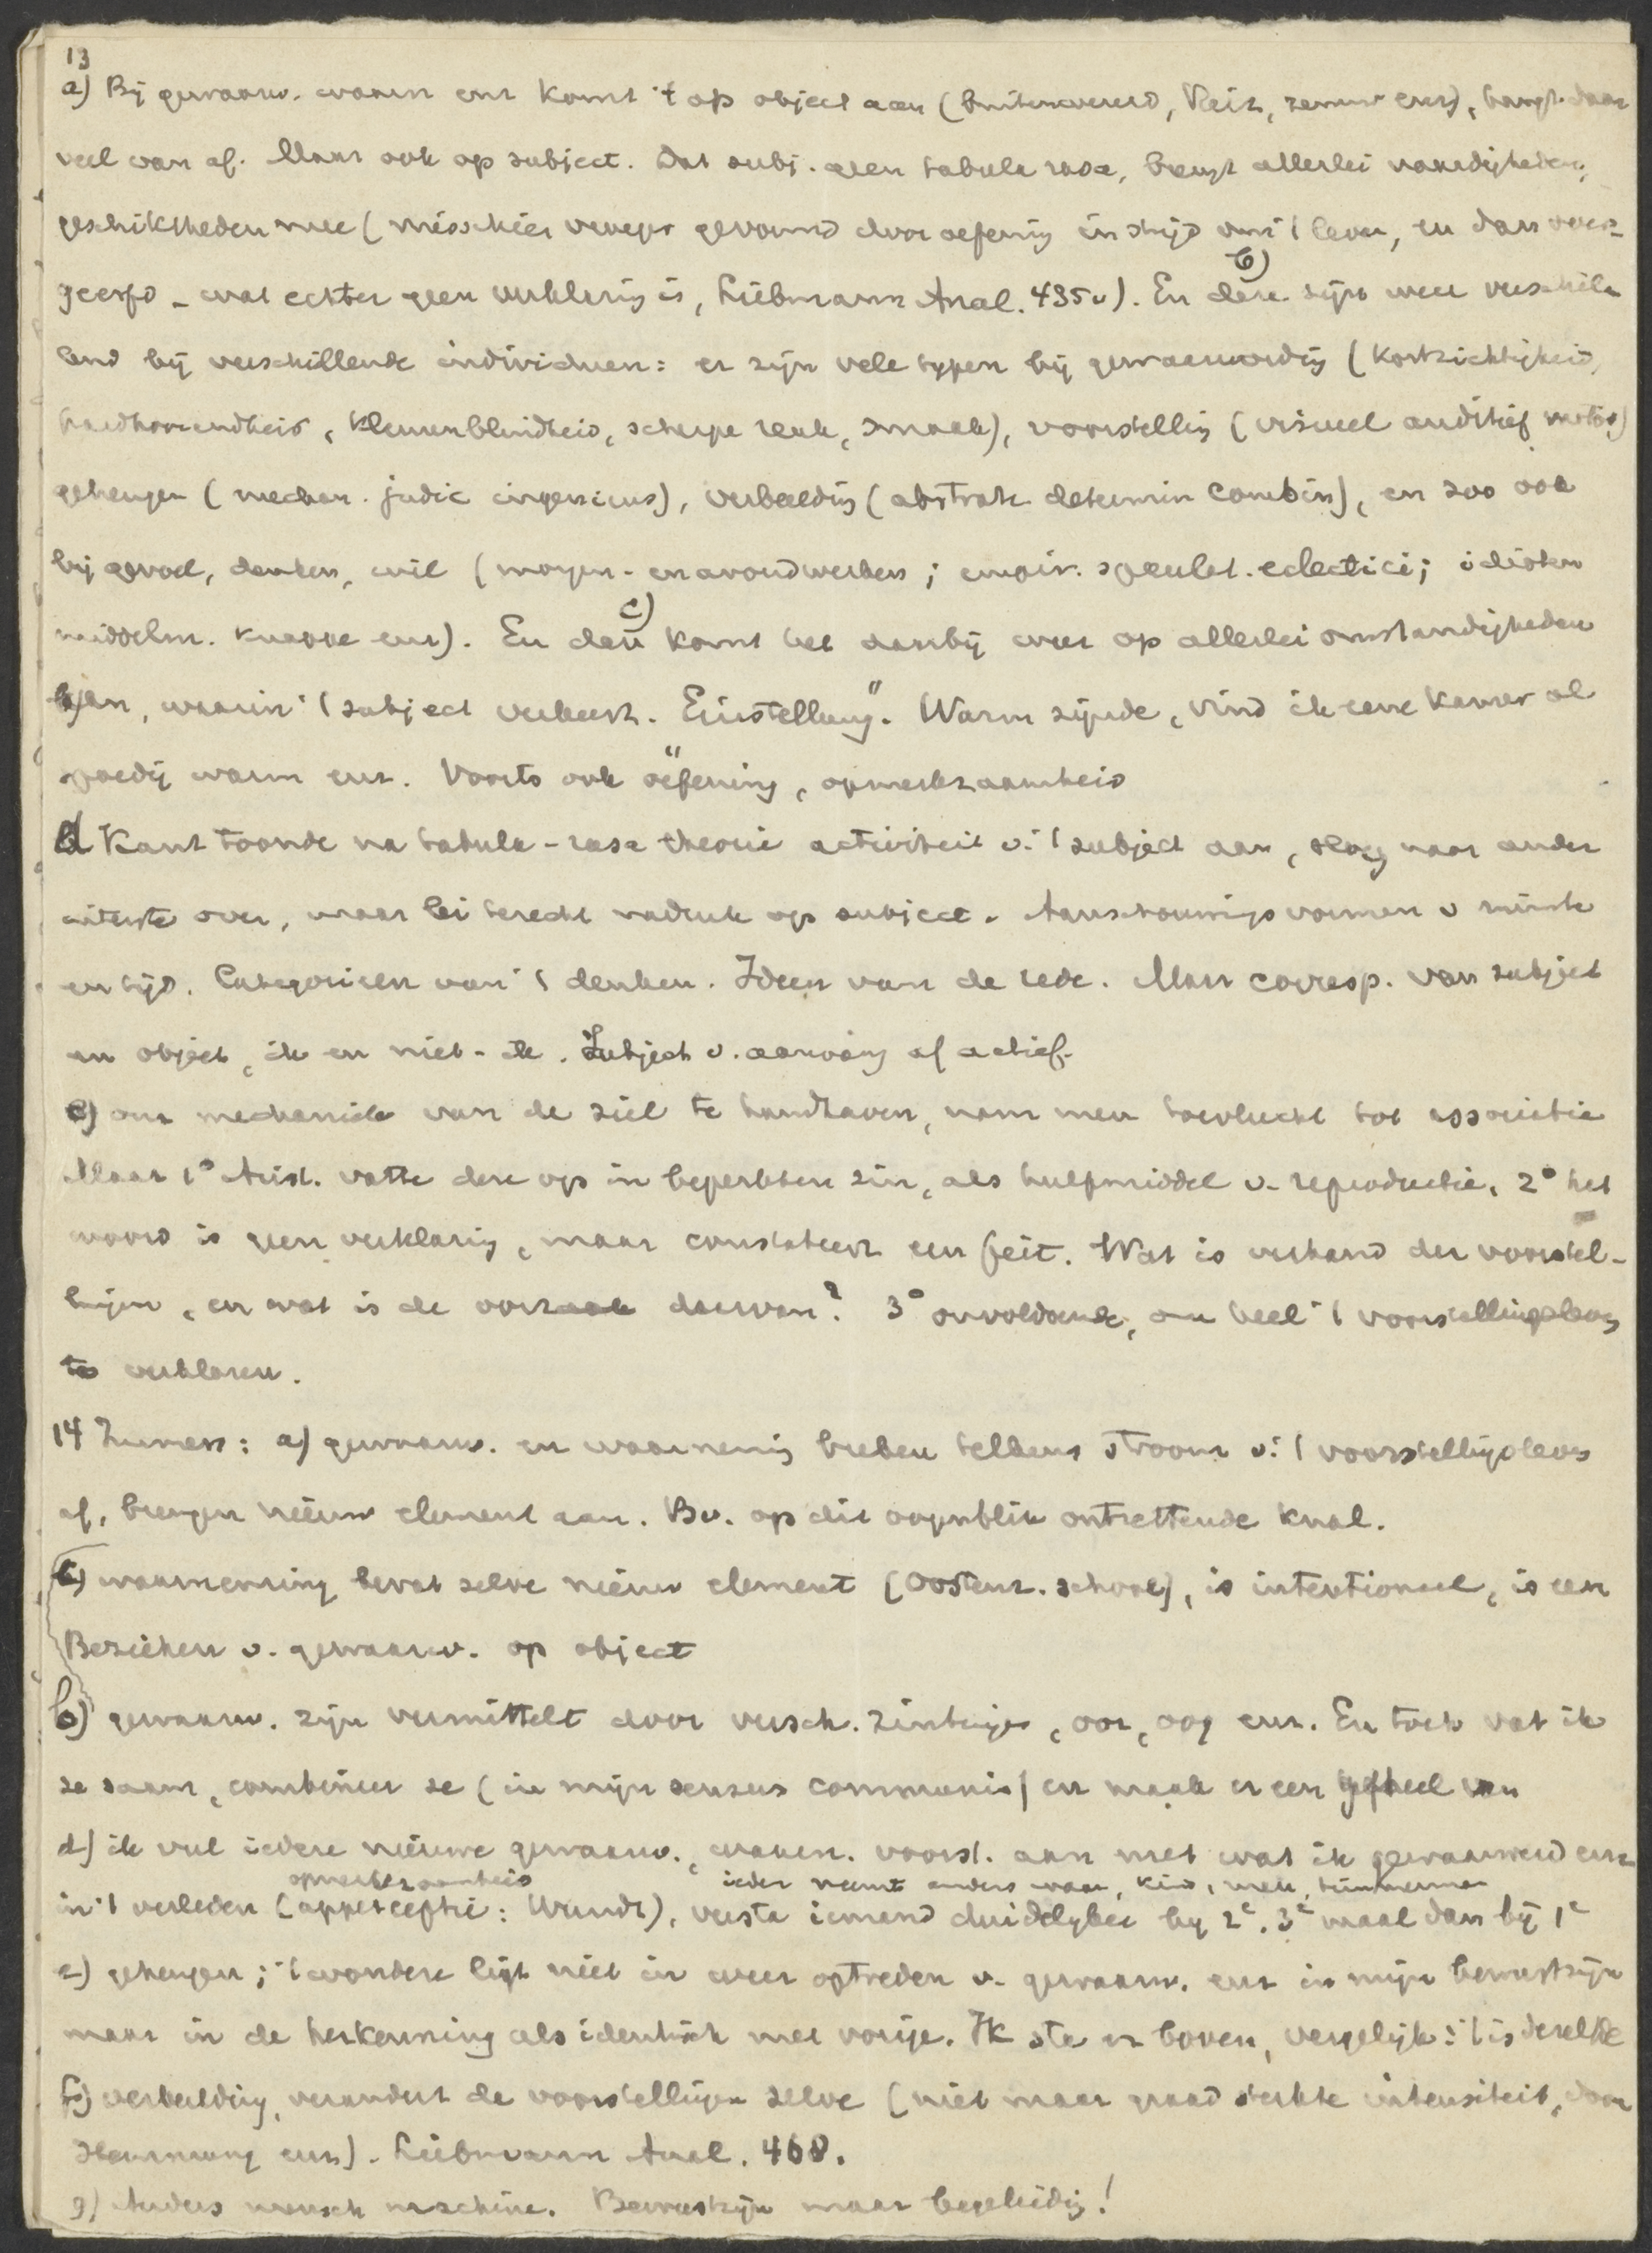 13
a) Bij gewaarw. waarn enz komt 't op object aan (buitenwereld, Reiz, zenuw enz), hangt daar
veel van af. Maar ook op subject. Dat subj. geen tabula rasa, brengt allerlei vaardigheden,
geschiktheden mee (misschien vroeger gevormd door oefening in strijd van 't leven, en dan over-
geerfd – wat echter geen verklaring is, Liebmann Anal. 435v). En b) deze zijn weer verschil-
lend bij verschillende individuen: er zijn vele typen bij gewaarwording (kortzichtigheid,
hardhorendheid, kleurenblindheid, scherpe reuk, smaak), voorstelling (visueel auditief motor)
geheugen (mechan. judic ingenieus), verbeelding (abstrah. determin combin), en zoo ook
bij gevoel, denken, wil (morgen- en avondwerkers; empir. speculat. eclectici; idioten
middelm. knappe enz). En dan c) komt het daarbij weer op allerlei omstandigheden
aan, waarin 't subject verkeert. Einstellung". Warm zijnde, vind ik eene kamer al
spoedig warm enz. Voorts ook oefening, opmerkzaamheid
d Kant toonde na tabula-rasa theorie activiteit v. 't subject aan, sloeg naar ander
uiterste over, maar lei terecht nadruk op subject. Aanschouwings vormen v ruimte
en tijd. Categorieen van 't denken. Ideen van de rede. Maar corresp. van subject
en object, ik en niet-ik. Subject v. aanvang af actief.
e) om mechanica van de ziel te handhaven, nam men toevlucht tot associatie
Maar 1° Arist. vatte deze op in beperkten zin, als hulpmiddel v. reproductie, 2° het
woord is geen verklaring, maar constateert een feit. Wat is verband der voorstel-
lingen, en wat is de oorzaak daarvan? 3° onvoldoende, om heel 't voorstellingsleven
te verklaren.
14 Immers: a) gewaarw. en waarneming breken telkens stroom v. 't voorstellingsleven
af, brengen nieuw element aan. Bv. op dit oogenblik ontzettende knal.
c) waarneming bevat zelve nieuw element (Oostenr. school), is intentioneel, is een
Beziehen v. gewaarw. op object
b) gewaarw. zijn vermittelt door versch. zintuigen, oor, oog enz. En toch vat ik
ze saam, combineer ze (in mijn sensus communis) en maak er een geheel van
d) ik vul iedere nieuwe gewaarw., waarn. voorst. aan met wat ik gewaarwerd enz
opmerkzaamheid ieder neemt anders waar, kind, man, timmerman
in 't verleden (apperceptie: Wundt), versta iemand duidelijker bij 2e, 3e maal dan bij 1e
e) geheugen; 't wondere ligt niet in weer optreden v. gewaarw. enz in mijn bewustzijn
maar in de herkenning als identisch met vorige. Ik sta er boven, vergelijk: 't is dezelfde
f) verbeelding, verandert de voorstellingen zelve (niet maar graad sterkte intensiteit, door
Hemmung enz). Liebmann Anal. 468.
g) Anders mensch machine. Bewustzijn maar begeleiding!